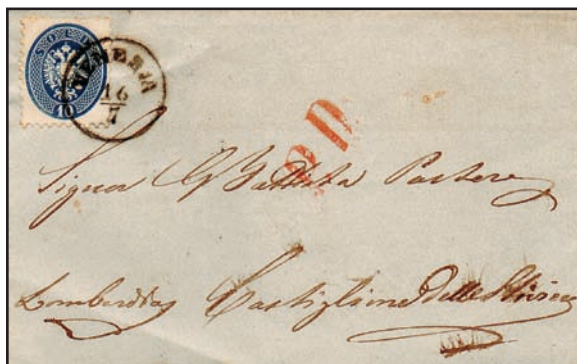 SOLDI
10
VENEZIA
16
7
P.D.
Signor G Battista Pastore
Lombardia Castiglione delle Stiviere